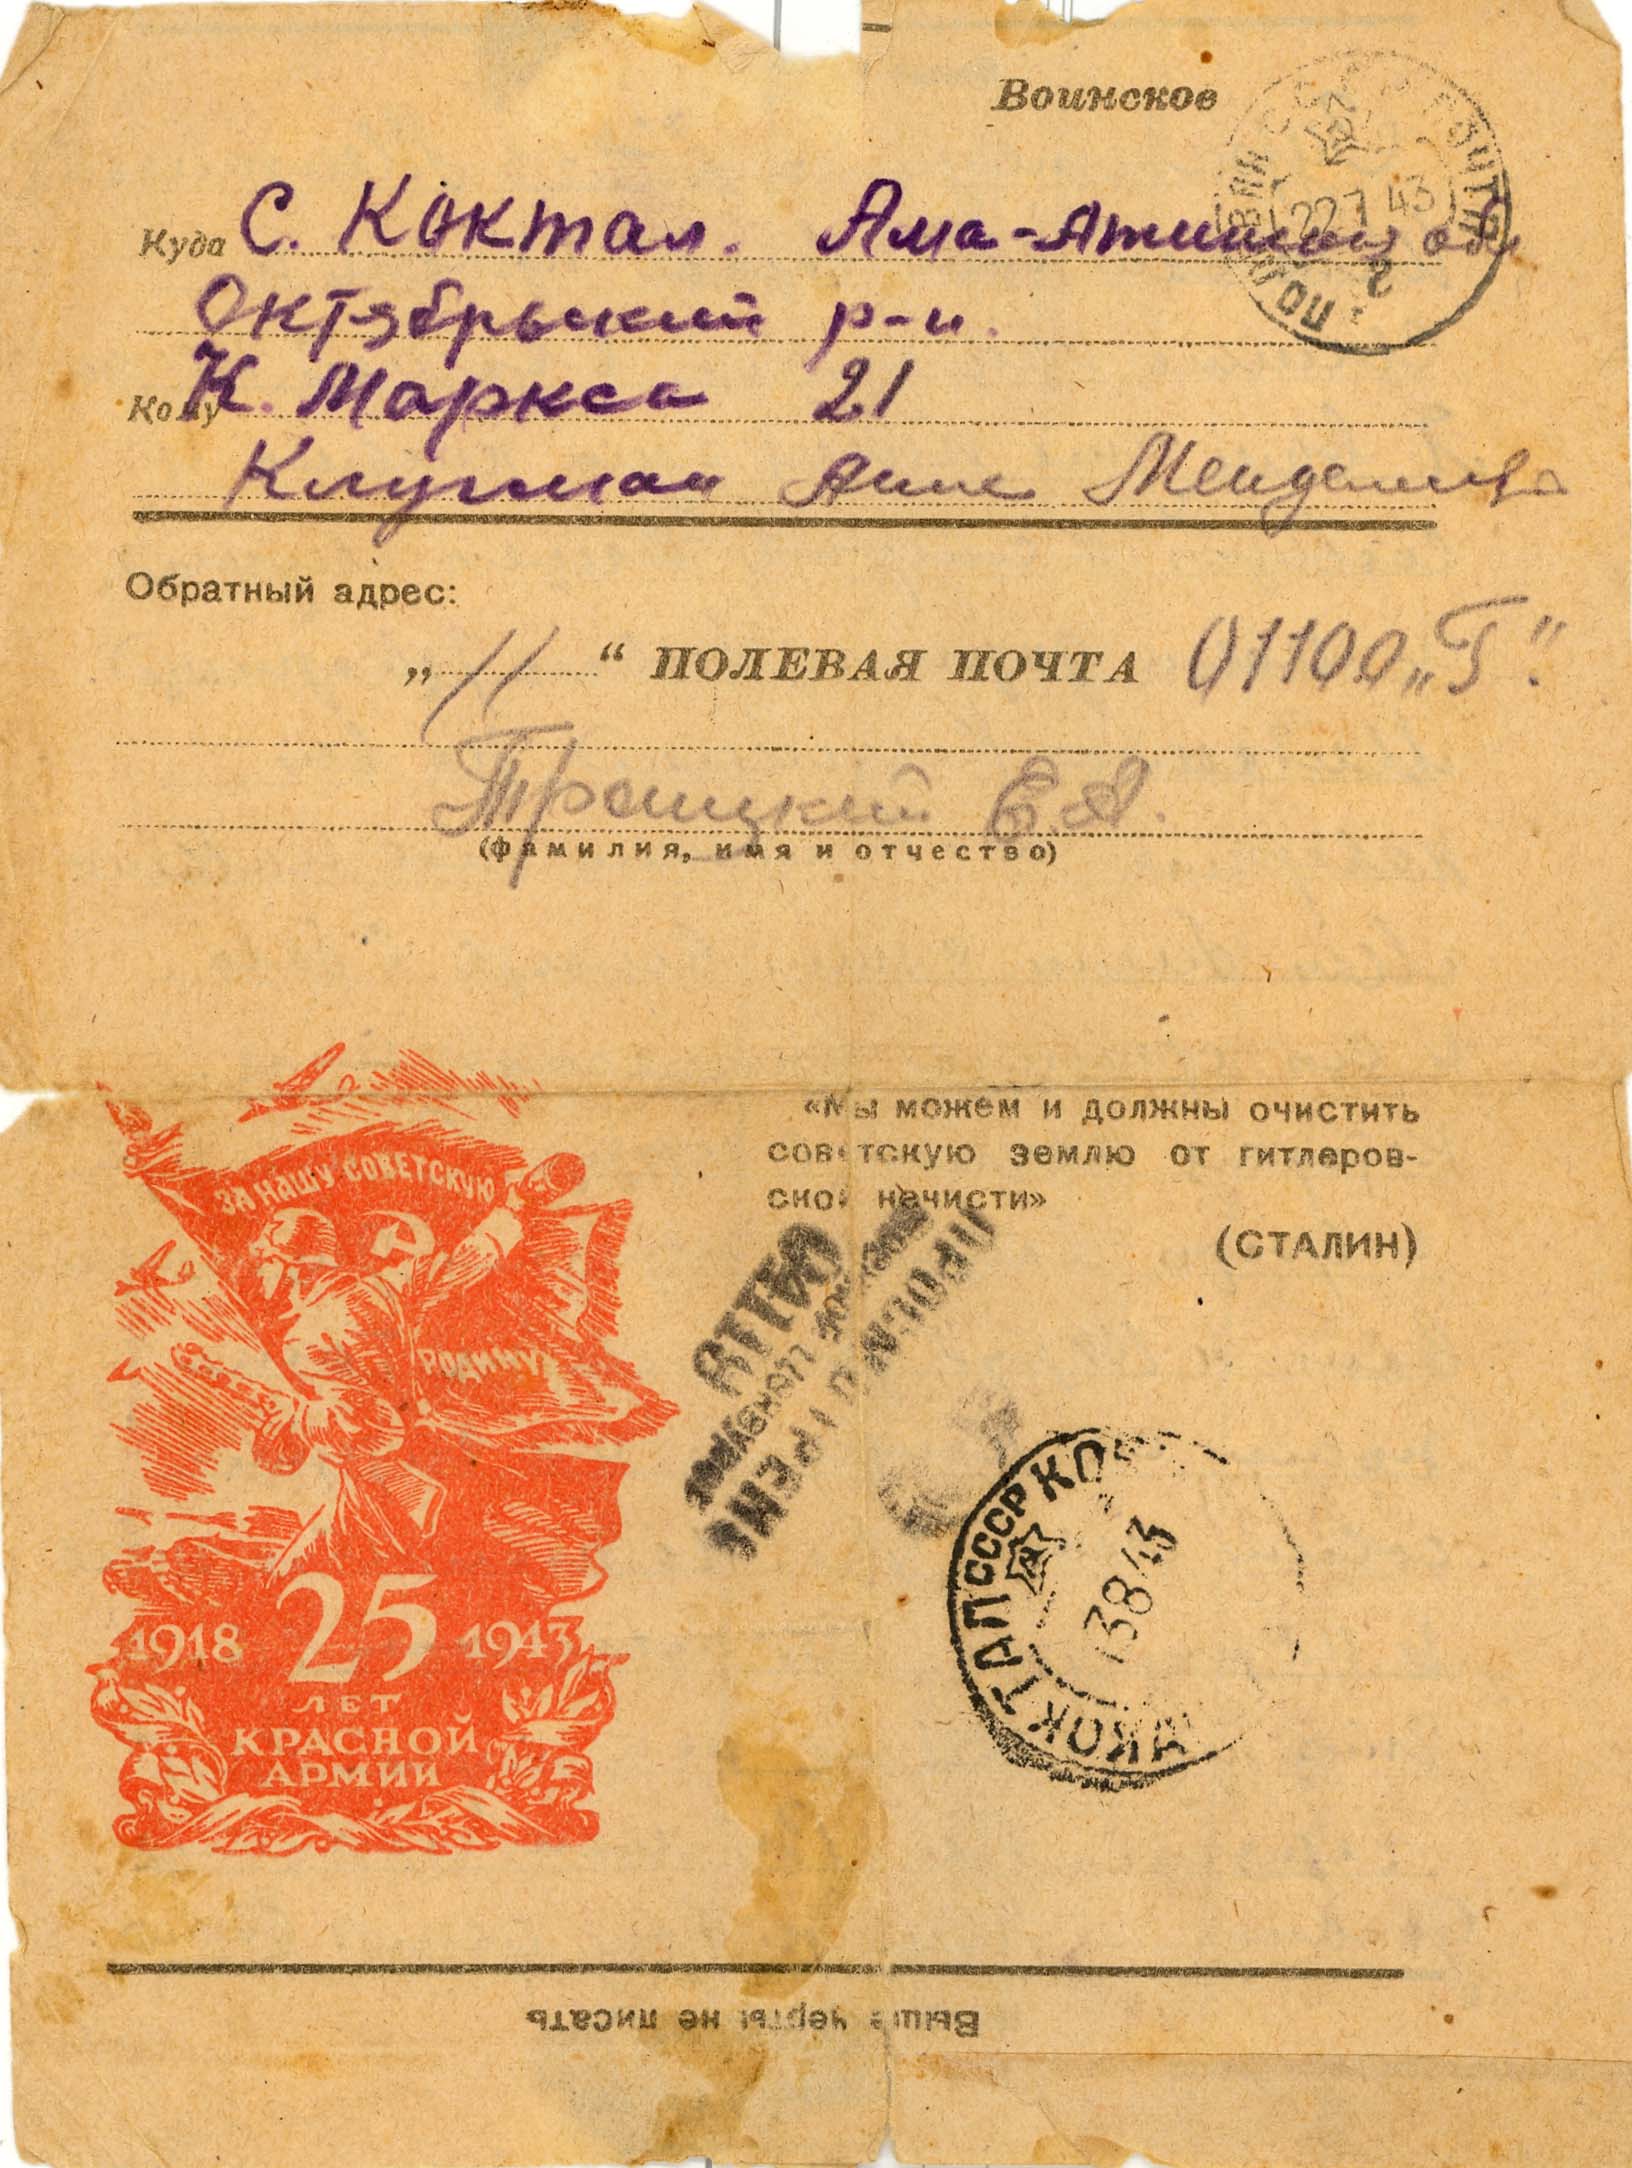 Воинское
Куда С. Коктал. Алма-Атинской обл
Октябрьский р-н.
Кому К. Маркса 21
Клугман Анне Менделевне
Обратный адрес:
„ 11 “ ПОЛЕВАЯ ПОЧТА 01100 „Г".
Троицкий Е.А.
(фамилия, имя и отчество)
22 7 43
«Мы можем и должны очистить
советскую землю от гитлеров-
ской нечисти»
(СТАЛИН)
ЗА НАШУ СОВЕТСКУЮ
РОДИНУ
1918 25 1943
ЛЕТ
КРАСНОЙ
АРМИИ
КОКТАЛ СССР КОК
3 8 43
Выше черты не писать